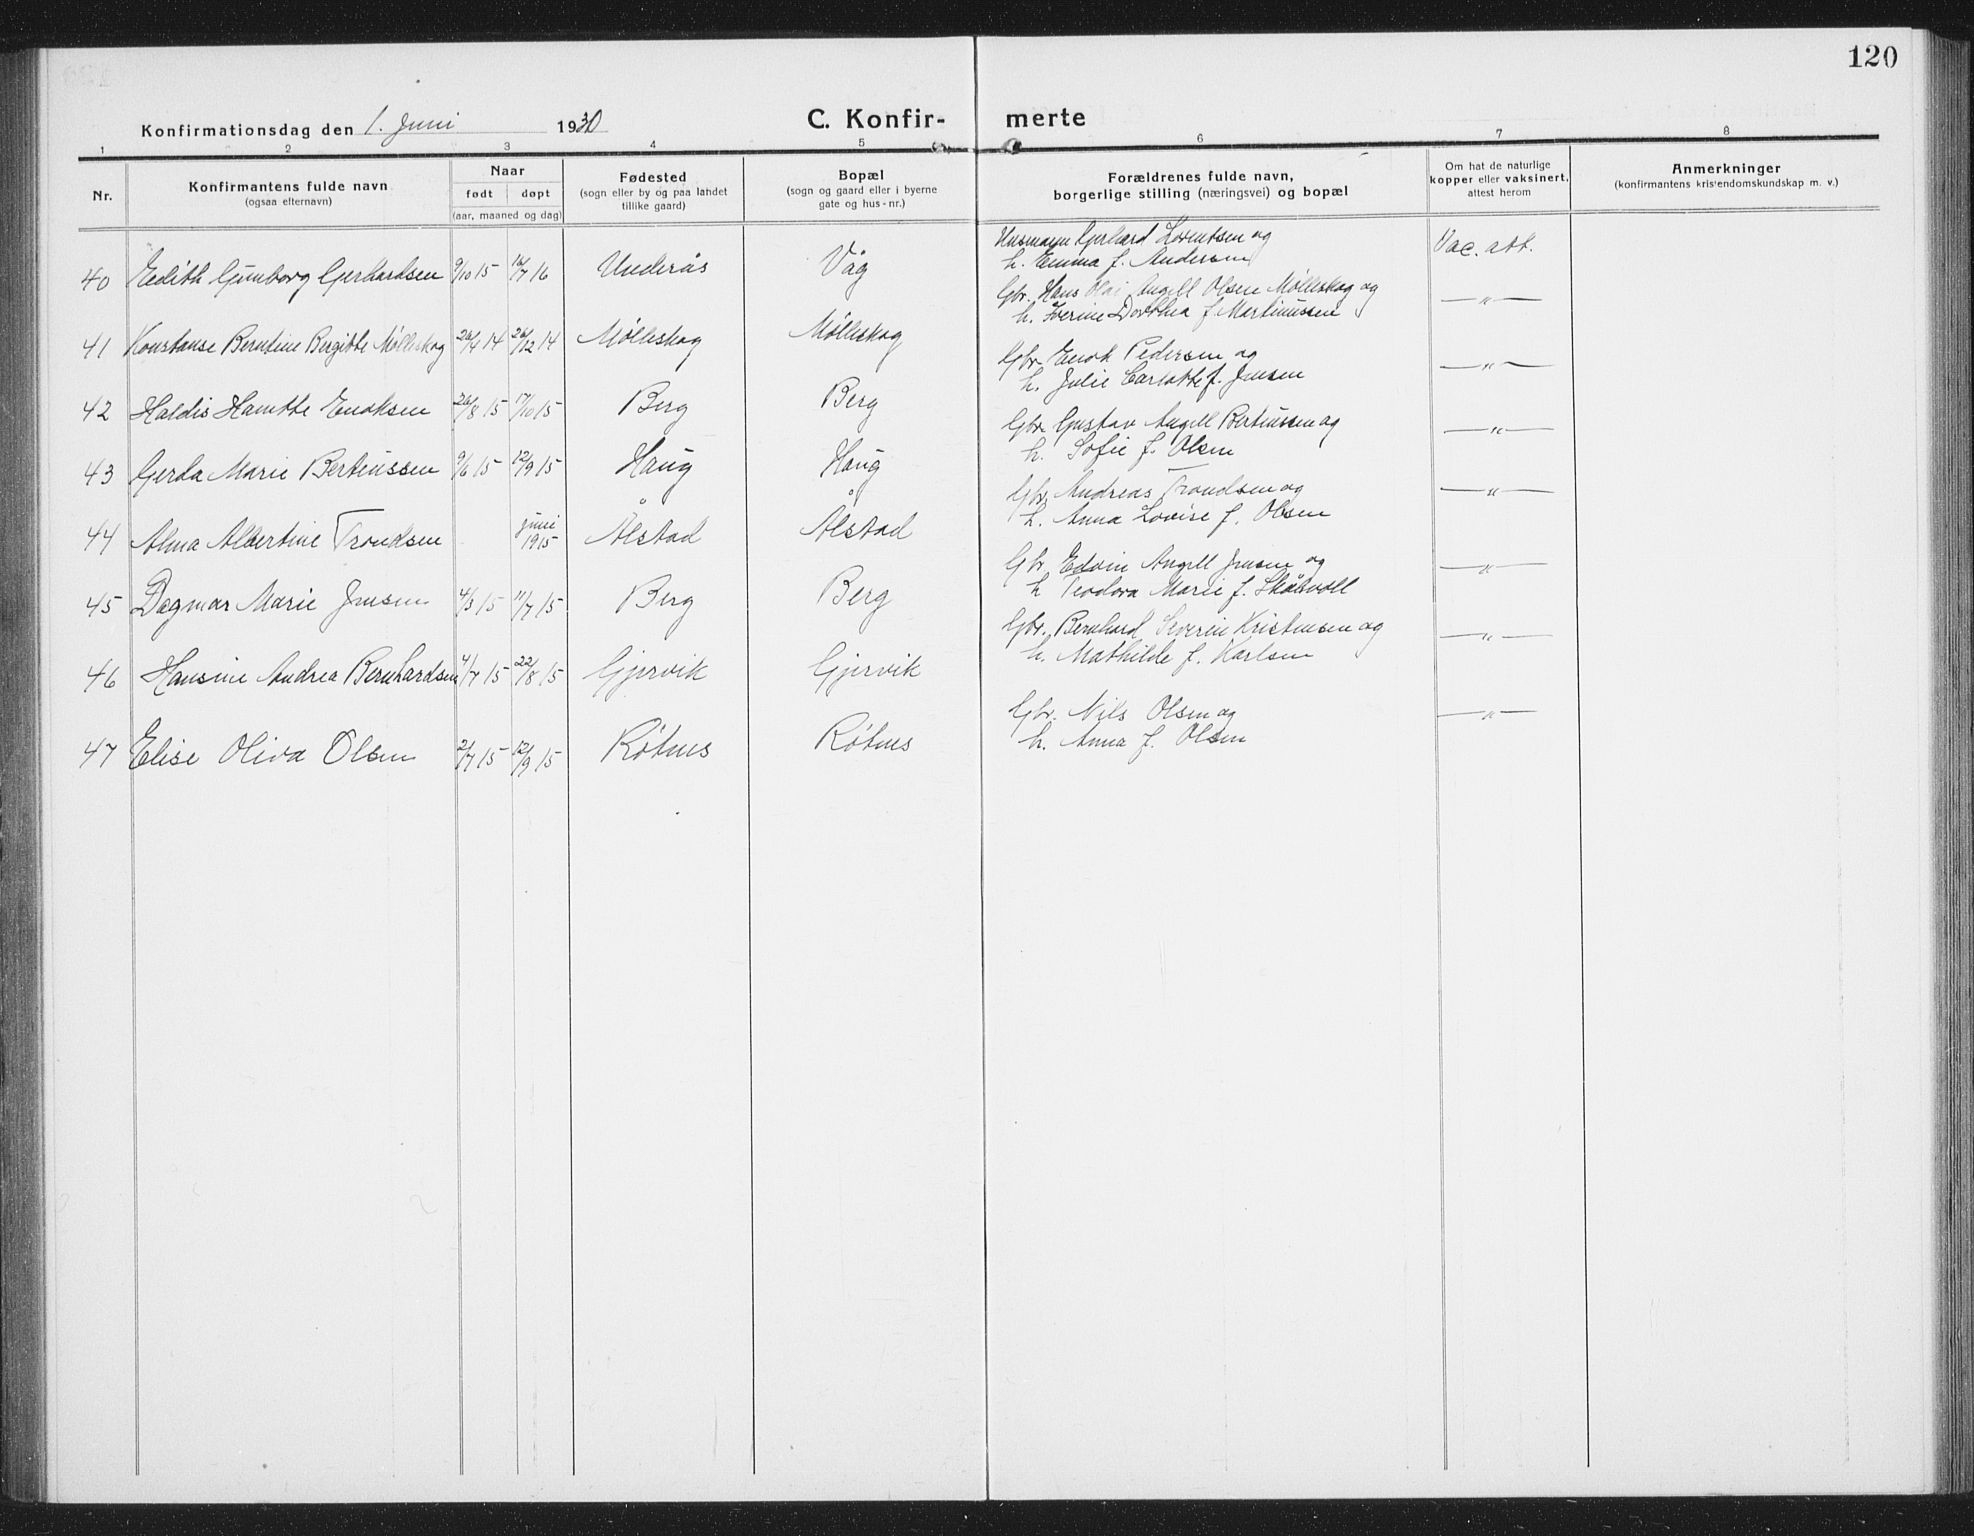 120
Konfirmationsdag den 1. Juni 1930
C. Konfir-merte
1 2 3 4 5 6 7 8
Nr.
Konfirmantens fulde navn
(ogsaa efternavn)
Naar
født døpt
(aar, maaned og dag)
Fødested
(sogn eller by og paa landet
tillike gaard)
Bopæl
(sogn og gaard eller i byerne
gate og hus-nr.)
Forældrenes fulde navn,
borgerlige stilling (næringsvei) og bopæl
Om hat de naturlige
kopper eller vaksinert,
attest herom
Anmerkninger
(konfirmantens kristendomskundskap m. v.)
Husmann Gerhard Lorentsen og
40 Edith Gunborg Gerhardsen 9/10 15 16/7 16 Underås Våg h. Emma f. Andersen Vac. att.
Gbr. Hans Olai Angell Olsen Mølleskog og
h. Iverine Dorthea f. Martinussen —"—
41 Konstanse Berntine Bergitte Mølleskog 26/4 14 26/12 14 Mølleskog Mølleskog
Gbr. Enok Pedersen og
h. Julie Carlotte f. Jensen —"—
42 Haldis Hanitte Enoksen 26/8 15 17/10 15 Berg Berg
Gbr. Gustav Angell Bertinussen og
h. Sofie f. Olsen —"—
43 Gerda Marie Bertinussen 9/6 15 12/9 15 Haug Haug
Gbr. Andreas Trondsen og
h. Anna Lovise f. Olsen —"—
44 Alma Albertine Trondsen juni 1915 Ålstad Ålstad
Gbr. Edvin Angell Jensen og
h. Teodora Marie f. Skåvoll —"—
45 Dagmar Marie Jensen 4/3 15 11/7 15 Berg Berg
Gbr. Bernhard Severin Kristensen og
h. Mathilde f. Karlsen —"—
46 Hansine Andrea Bernhardsen 4/7 15 22/8 15 Gjervik Gjervik
Gbr. Nils Olsen og
h. Anna f. Olsen —"—
47 Elise Oliva Olsen 2/7 15 12/9 15 Røtnes Røtnes